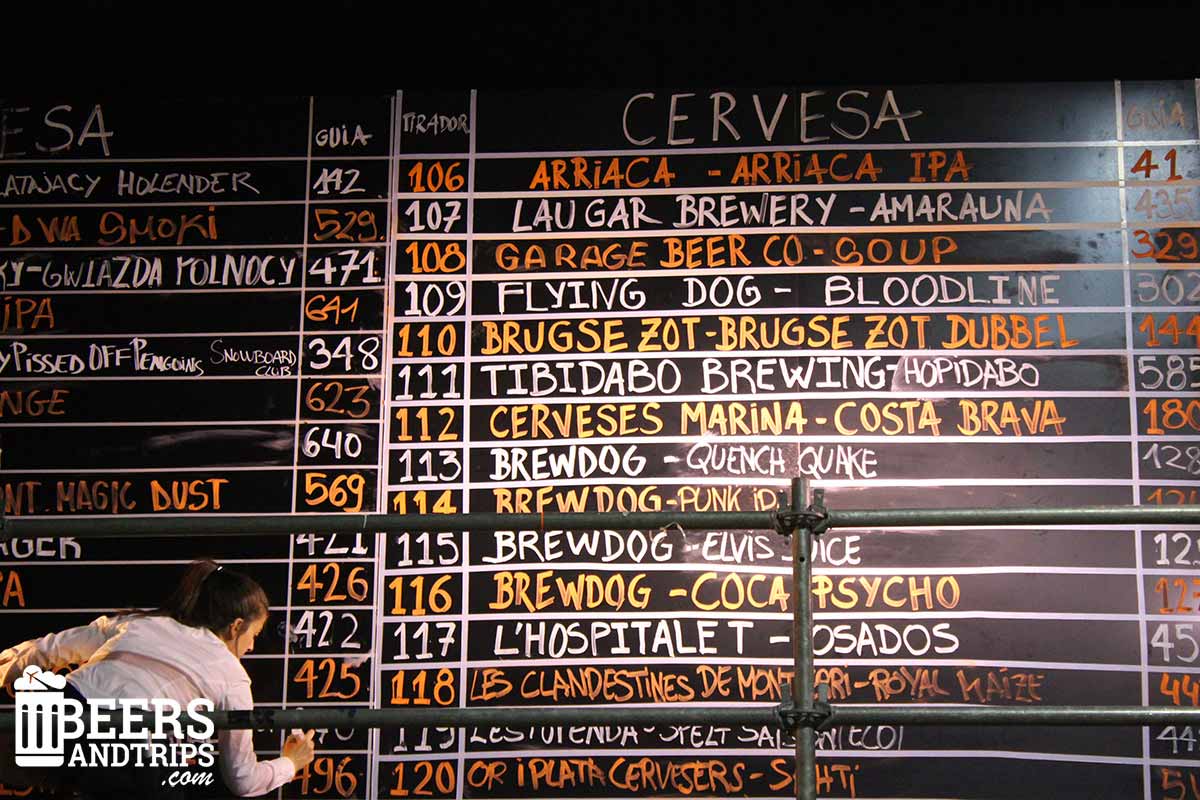 ESA GUIA
ATAJACY HOLENDER 442
DWA SMOKI 529
KY-GWIAZDA POLNOCY 471
IPA 641
Y PISSED OFF PENGOINS SNOWBOARD CLUB 348
NGE 623
640
ONT. MAGIC DUST 569
AGER 421
PA 426
422
425
496
TIRADOR CERVESA GUIA
106 ARRIACA - ARRIACA IPA 41
107 LAUGAR BREWERY - AMARAUNA 435
108 GARAGE BEER CO - SOUP 329
109 FLYING DOG - BLOODLINE 302
110 BRUGSE ZOT-BRUGSE ZOT DUBBEL 144
111 TIBIDABO BREWING-HOPIDABO 585
112 CERVESES MARINA - COSTA BRAVA 180
113 BREWDOG - QUENCH QUAKE 128
114 BREWDOG-PUNK
115 BREWDOG - ELVIS JUICE 12
116 BREWDOG - COCA PSYCHO 12
117 L'HOSPITALET - OSADOS 45
118 LES CLANDESTINES DE MONT RI-ROYAL MAIZE 44
119 LESTUPENDA - SPELT SAISON ECO 44
120 ORIPLATA CERVESERS - S HTI 51
BEERS
ANDTRIPS
.com